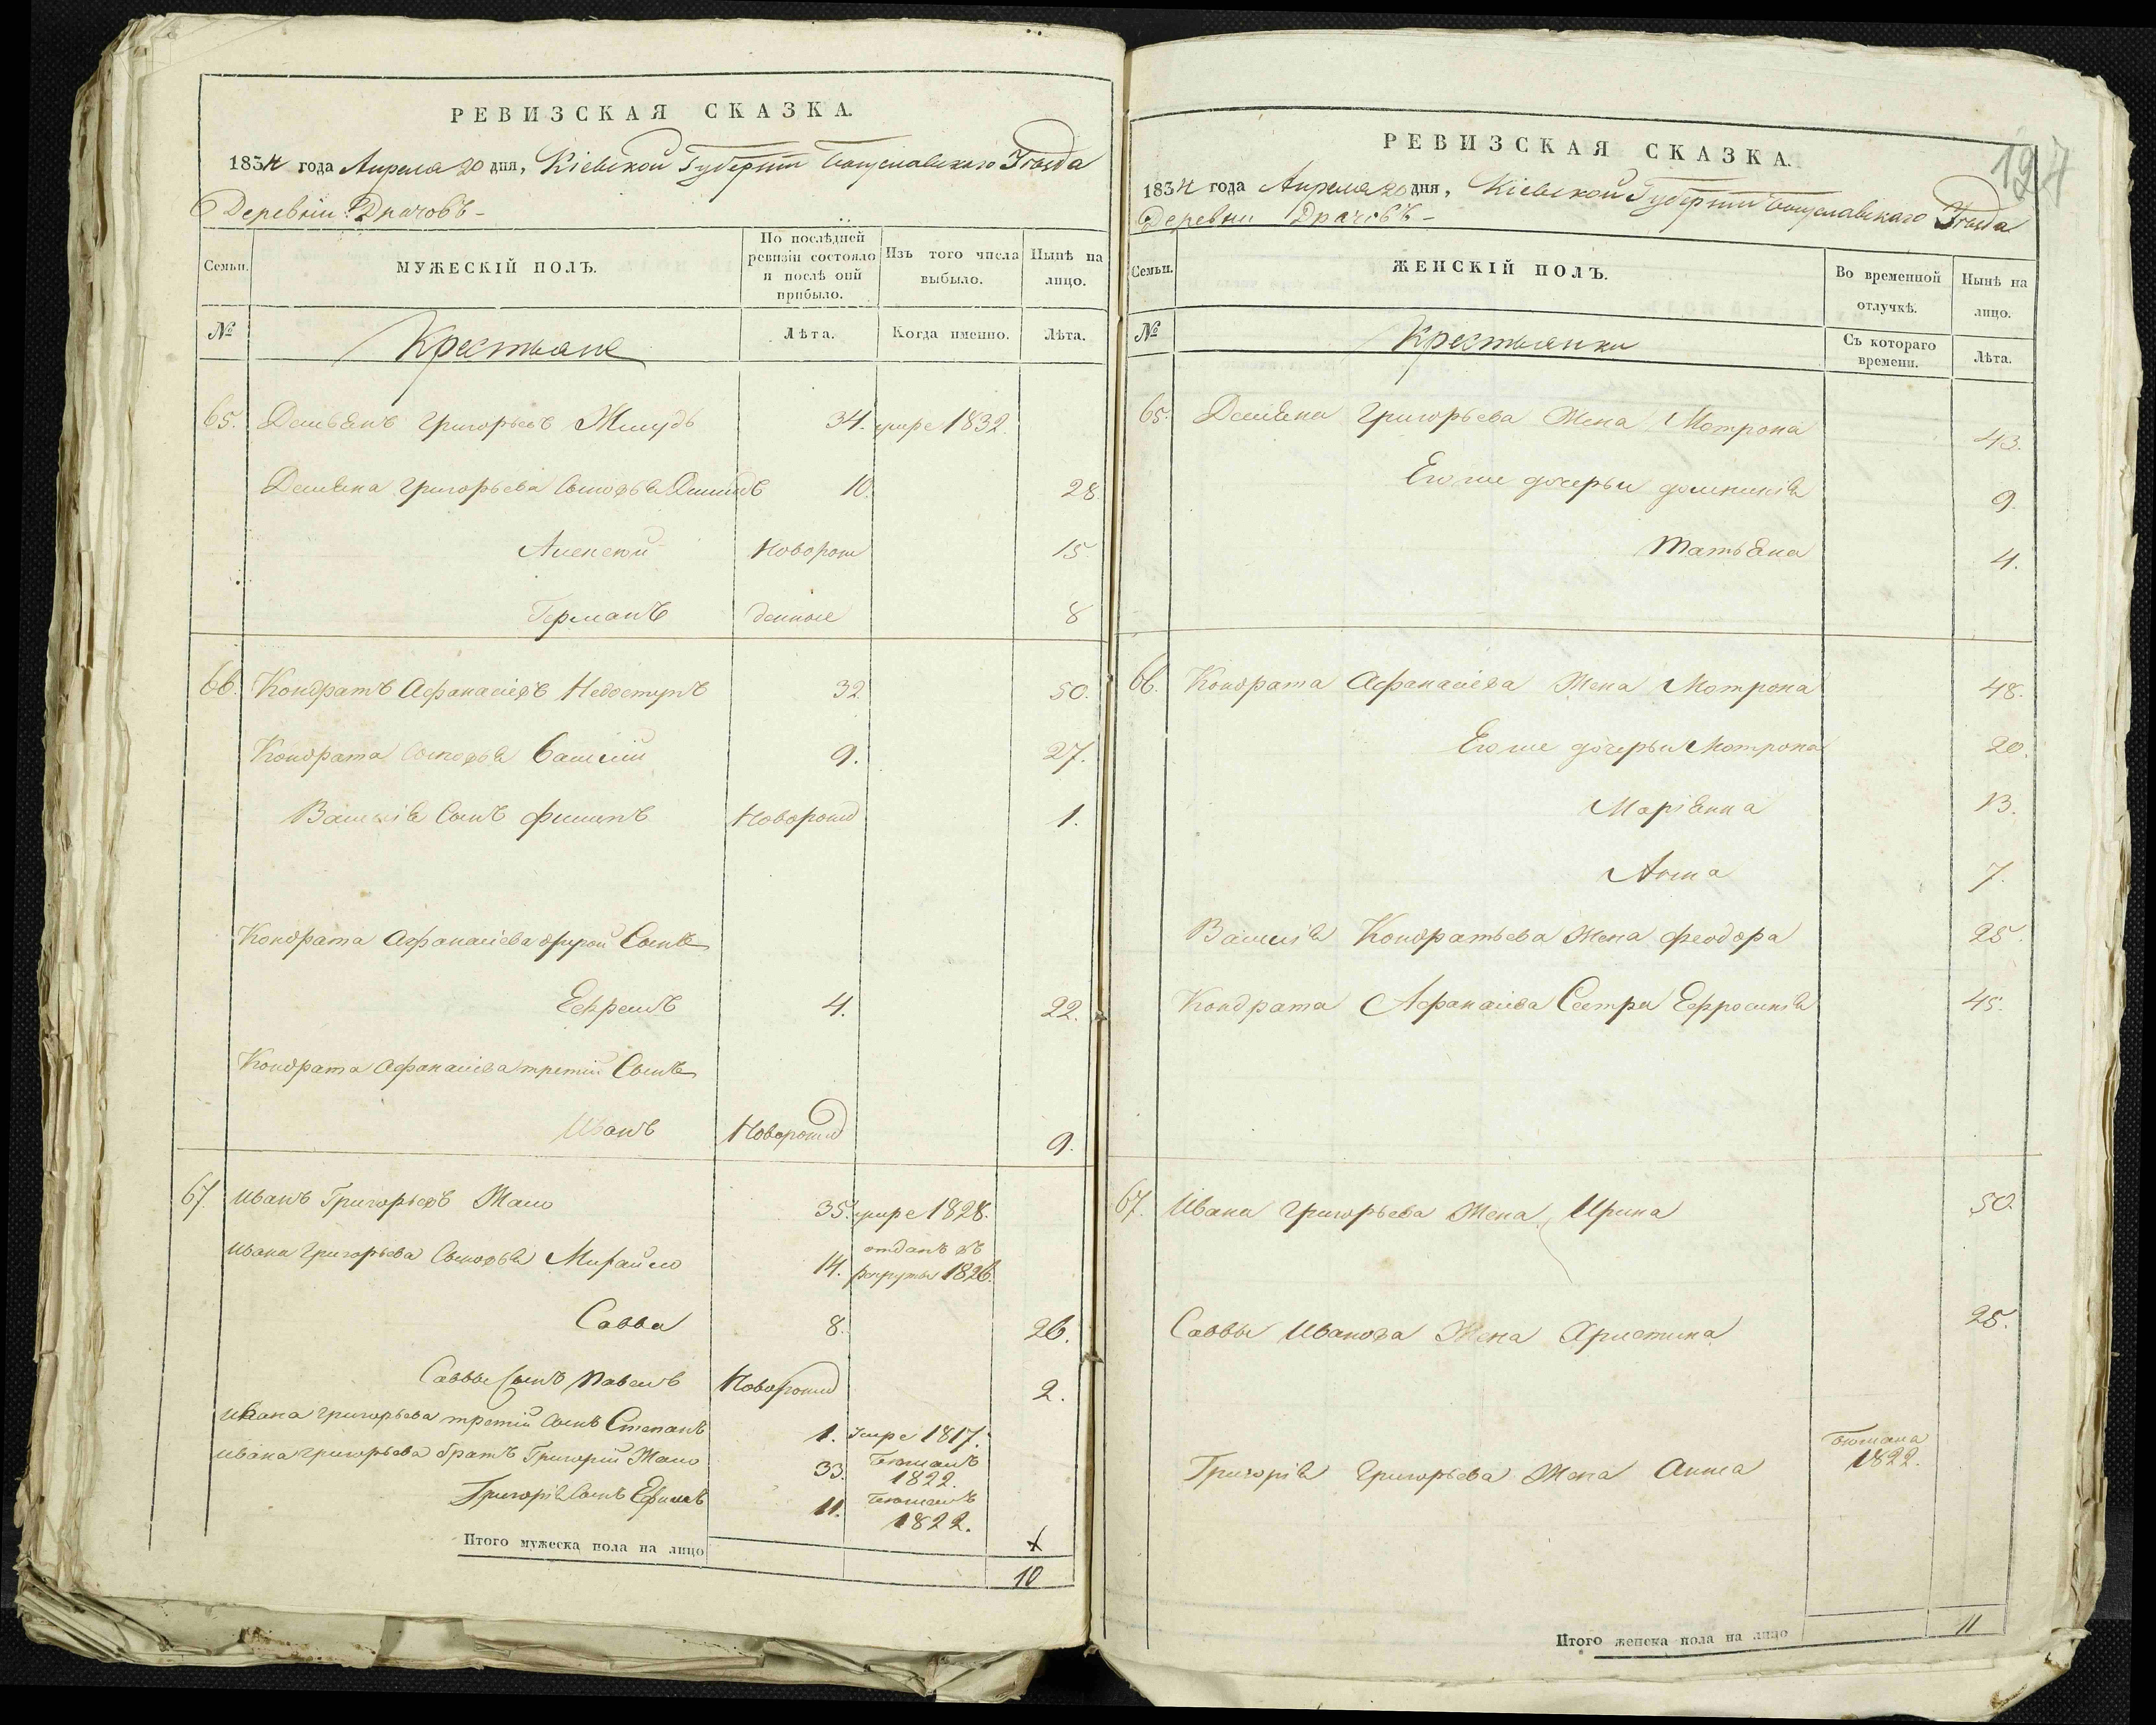 РЕВИЗСКАЯ СКАЗКА.
1834 года Апреля 20 дня, Кіевской Губерніи Богуславскаго Уѣзда
Деревни Драчовъ -
Семьи. МУЖЕСКІЙ ПОЛЪ. По послѣдней ревизіи состояло и послѣ оной прибыло. Изъ того числа выбыло. Нынѣ на лицо.
№ Крестьяне Лѣта. Когда именно. Лѣта.
65. Демьянъ Григорьевъ 34. умре 1832.
Демьяна Григорьева Сыновья 10. 28
Алексей Новорож 15.
Германъ денные 8
66. Кондратъ Афанасіевъ Недоступъ 32 50.
Кондрата Сыновья Василій 9. 27.
Василія Сынъ Филипъ Новорожд 1.
Кондрата Афанасіева другой Сынъ
Ефремъ 4. 22.
Кондрата Афанасіева третій Сынъ
Иванъ Новорожд 9.
67. Иванъ Григорьевъ 35. умре 1828.
Ивана Григорьева Сыновья Михайло 14. отданъ въ рекруты 1826.
Савва 8. 26.
Саввы Сынъ Павелъ Новорожд 2.
Ивана Григорьева третій Сынъ Степанъ 1. Умре 1817.
Ивана Григорьева братъ Григорій 33. Бежалъ 1822.
Григорія Сынъ Ефимъ 11. Бежалъ 1822.
Итого мужеска пола на лицо 10
127
РЕВИЗСКАЯ СКАЗКА.
1834 года Апреля 20 дня, Кіевской Губерніи Богуславскаго Уѣзда
Деревни Драчовъ -
Семьи. ЖЕНСКІЙ ПОЛЪ. Во временной отлучкѣ. Нынѣ на лицо.
№ Крестьянки Съ котораго времени. Лѣта.
65. Демьяна Григорьева Жена Мотрона 43.
Его же дочери Домникія 9.
Татьяна 4.
66. Кондрата Афанасіева Жена Мотрона 48.
Его же дочери Мотрона 20.
Маріянна 13.
Анна 7.
Василія Кондратьева Жена Феодора 25.
Кондрата Афанасіева Сестра Ефросинія 45.
67. Ивана Григорьева Жена Ирина 50.
Саввы Иванова Жена Христина 25.
Григорія Григорьева Жена Анна Бежала 1822.
Итого женска пола на лицо 11